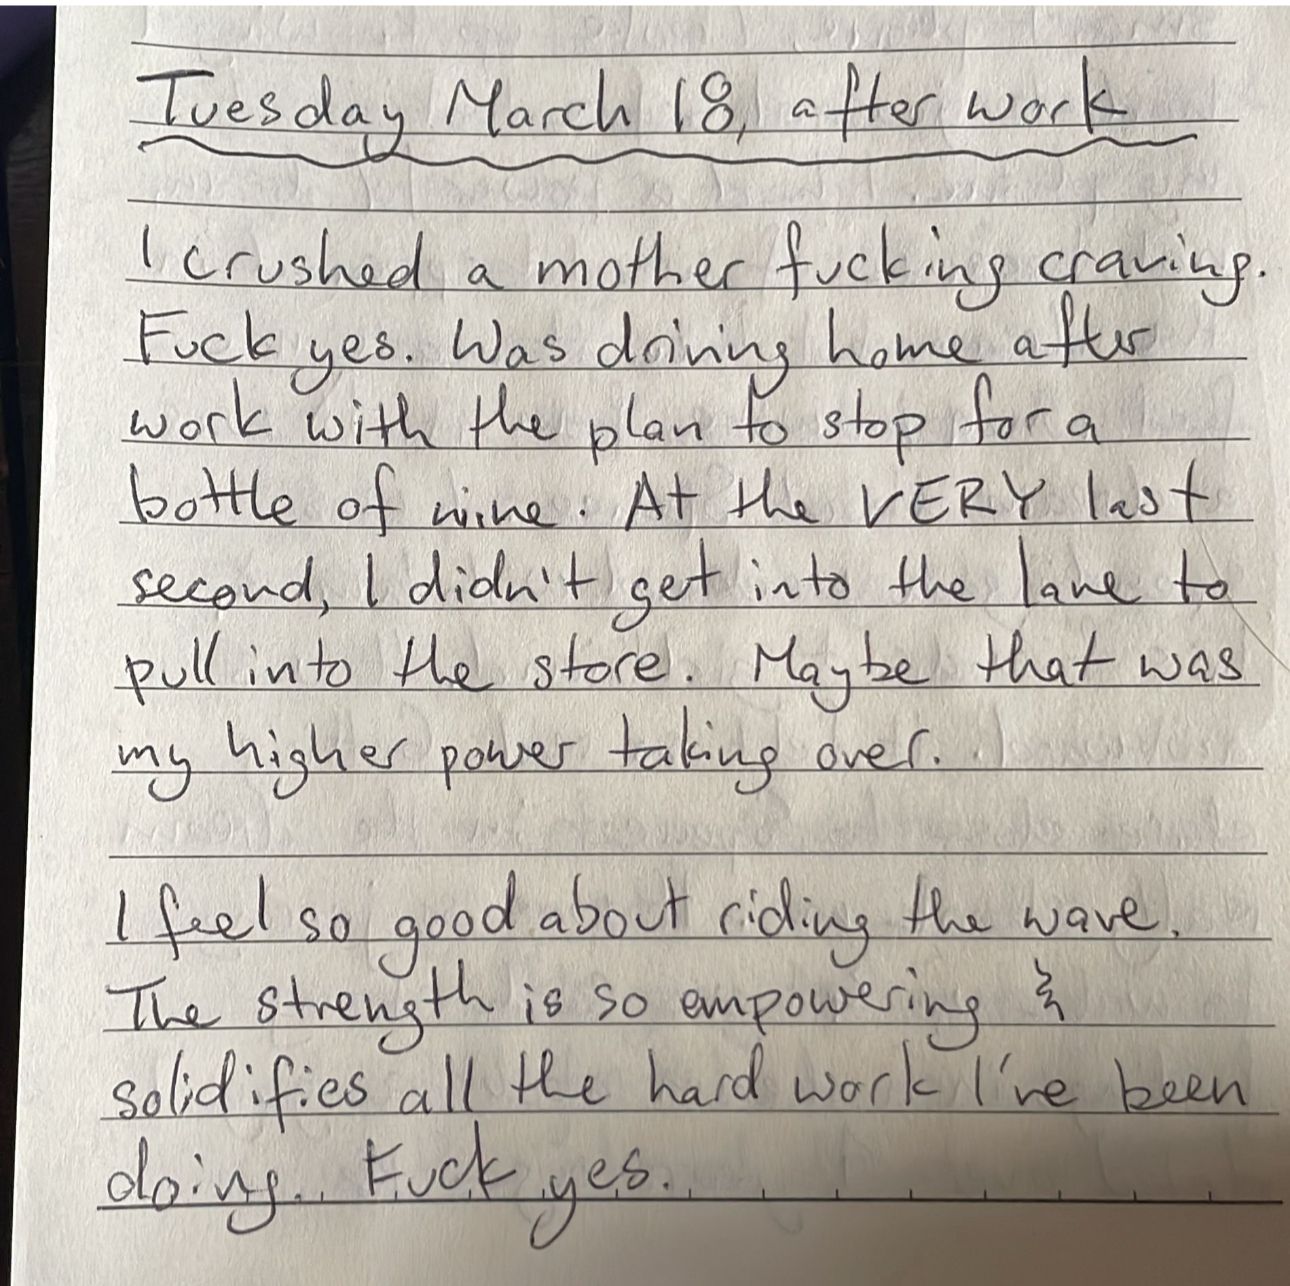 Tuesday March 18, after work
I crushed a mother fucking craving.
Fuck yes. Was driving home after
work with the plan to stop for a
bottle of wine. At the VERY last
second, I didn't get into the lane to
pull into the store. Maybe that was
my higher power taking over.
I feel so good about riding the wave.
The strength is so empowering &
solidifies all the hard work I've been
doing. Fuck yes.